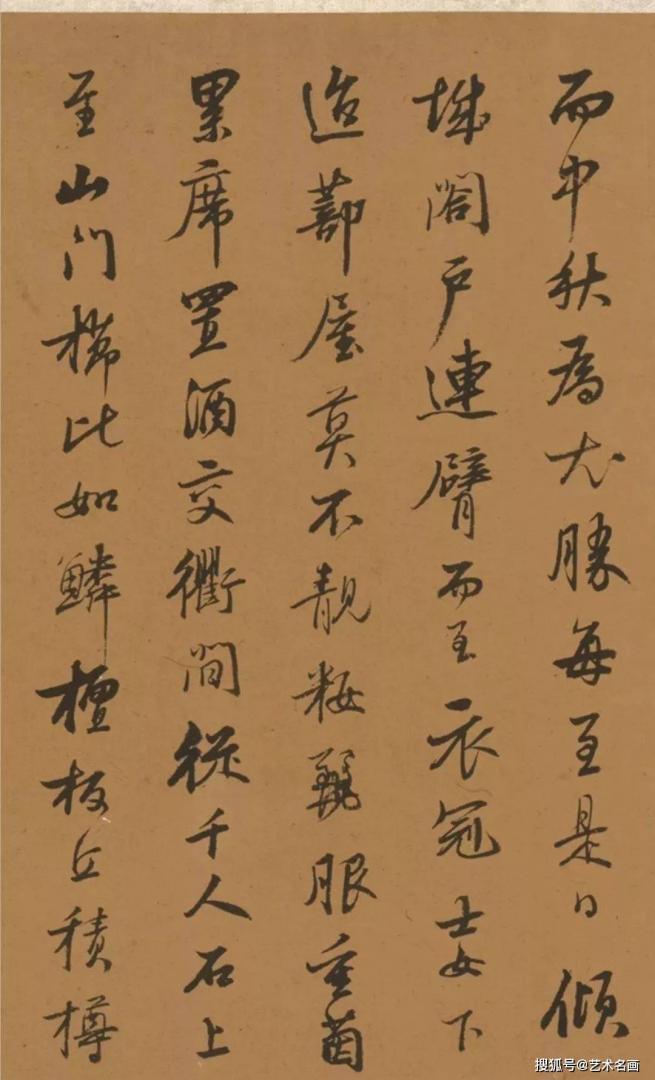 而中秋為尤勝每至是日傾
城闔戶連臂而至衣冠士女下
迨蔀屋莫不靚粧麗服重茵
累席置酒交衢間從千人石上
至山門櫛比如鱗檀板丘積樽
搜狐号@艺术名画